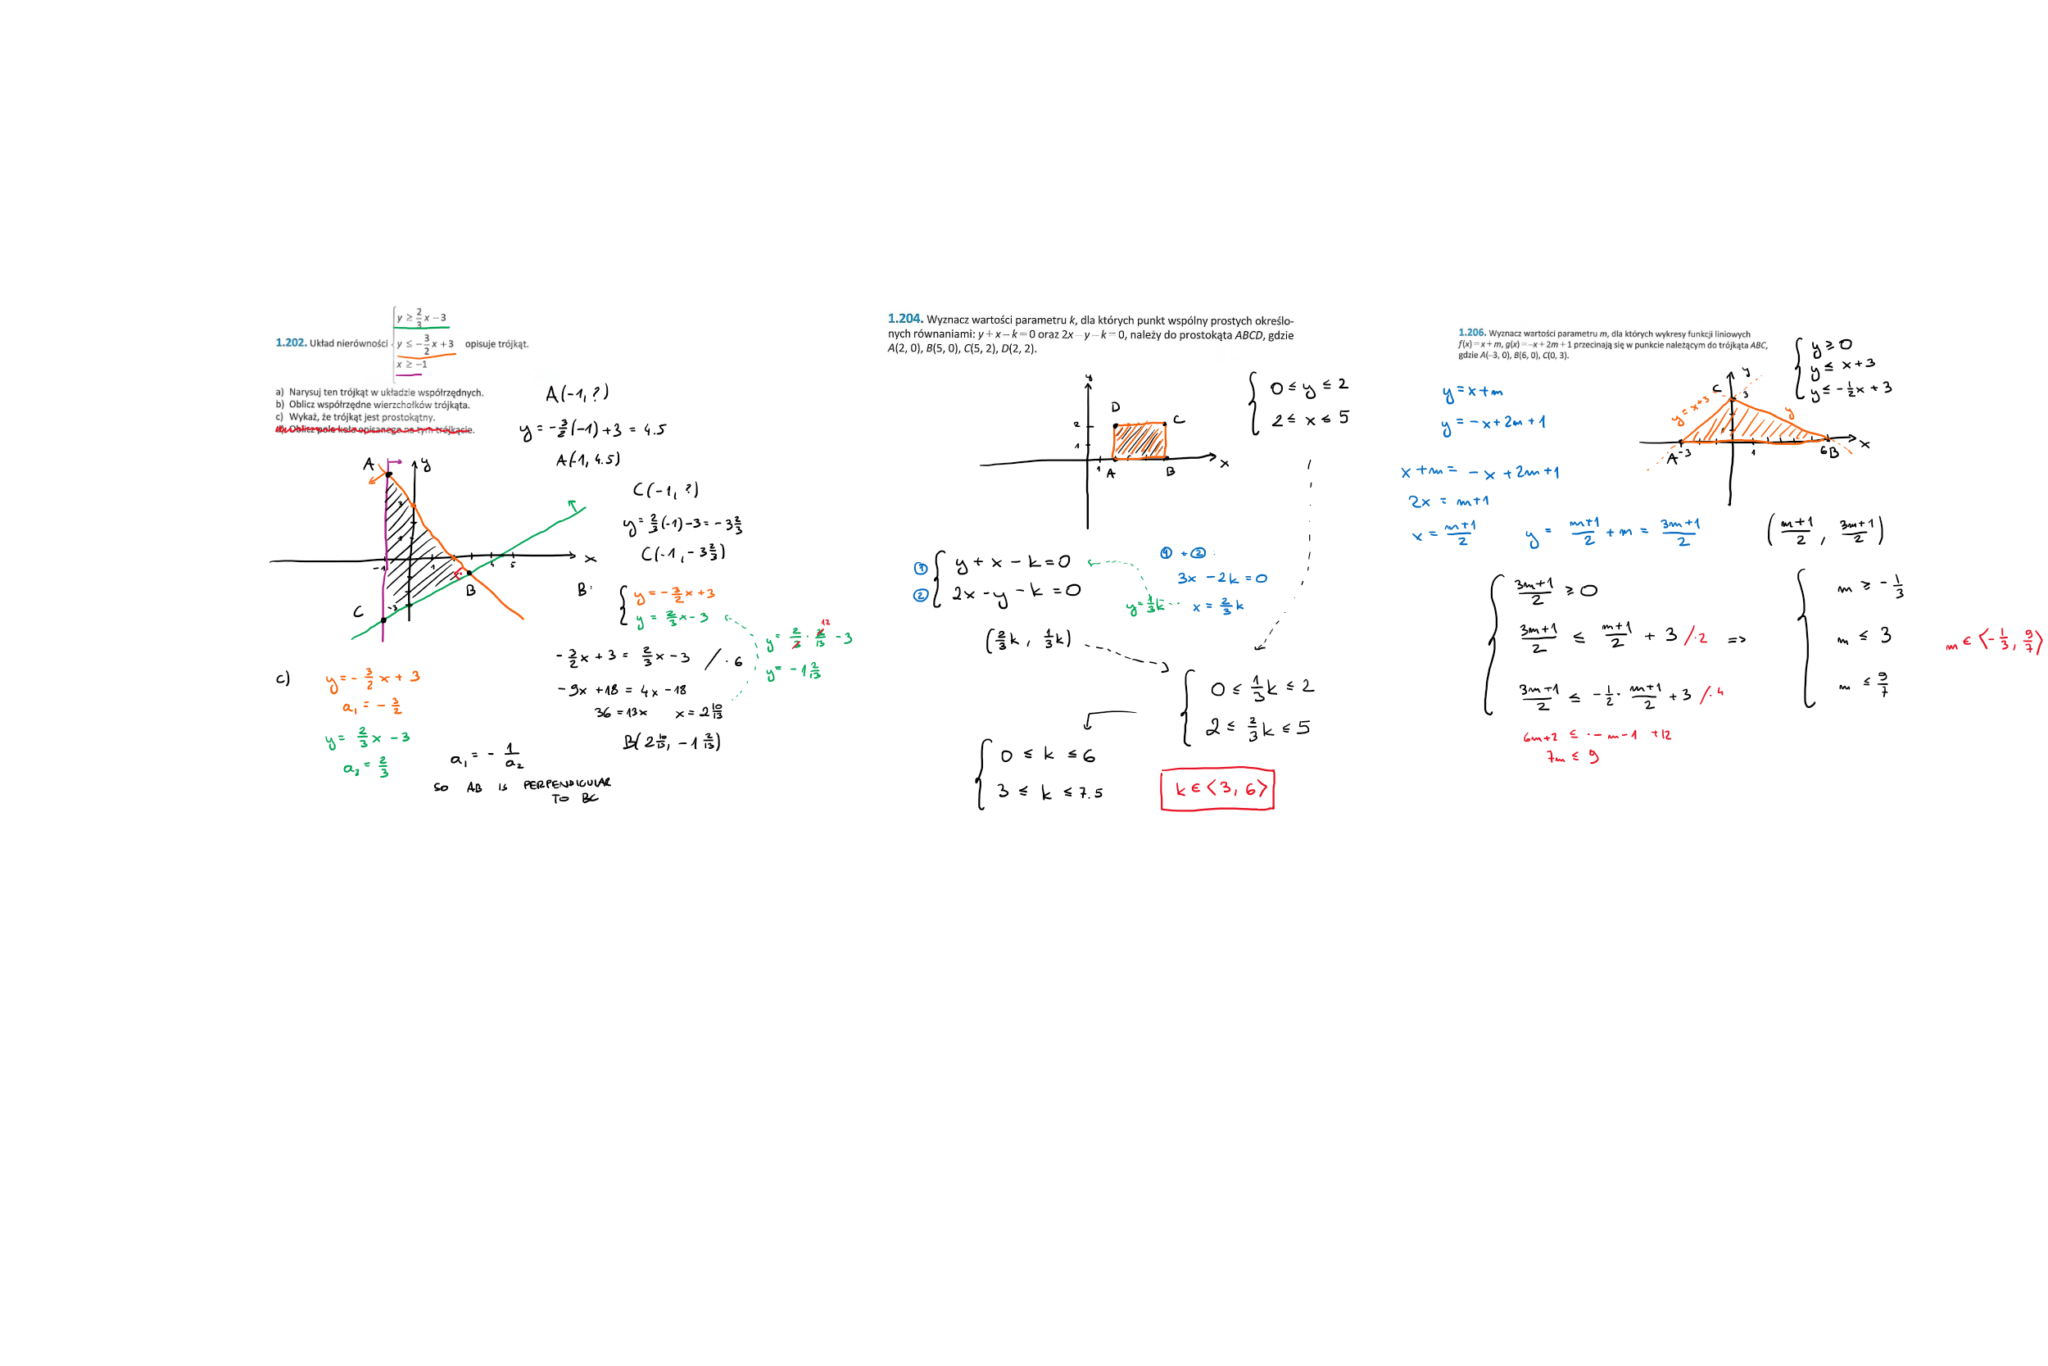 1.202. Układ nierówności { y ≥ 2/3 x − 3
y ≤ −3/2 x + 3 opisuje trójkąt.
x ≥ −1
a) Narysuj ten trójkąt w układzie współrzędnych.
b) Oblicz współrzędne wierzchołków trójkąta.
c) Wykaż, że trójkąt jest prostokątny.
d) Oblicz pole koła opisanego na tym trójkącie.
A(-1, ?)
y = -3/2(-1)+3 = 4.5
A(-1, 4.5)
A
y
x
-1
1
4
5
-3
B
C
C(-1, ?)
y = 2/3(-1)-3 = -3 2/3
C(-1, -3 2/3)
B:
{ y = -3/2x+3
y = 2/3x-3
-3/2x+3 = 2/3x-3 /·6
-9x+18 = 4x-18
36 = 13x x = 2 10/13
B(2 10/13, -1 2/13)
12
y = 2/3 · 36/13 - 3
y = -1 2/13
c)
y = -3/2x+3
a₁ = -3/2
y = 2/3x-3
a₂ = 2/3
a₁ = - 1/a₂
SO AB IS PERPENDICULAR
TO BC
1.204. Wyznacz wartości parametru k, dla których punkt wspólny prostych określo-
nych równaniami: y + x − k = 0 oraz 2x − y − k = 0, należy do prostokąta ABCD, gdzie
A(2, 0), B(5, 0), C(5, 2), D(2, 2).
y
D
C
2
1
1
A
B
x
{ 0 ≤ y ≤ 2
2 ≤ x ≤ 5
① { y + x - k = 0
② 2x - y - k = 0
① + ②:
3x - 2k = 0
x = 2/3k
y = 1/3k
(2/3k, 1/3k)
{ 0 ≤ 1/3k ≤ 2
2 ≤ 2/3k ≤ 5
{ 0 ≤ k ≤ 6
3 ≤ k ≤ 7.5
k ∈ ⟨3, 6⟩
1.206. Wyznacz wartości parametru m, dla których wykresy funkcji liniowych
f(x) = x + m, g(x) = −x + 2m + 1 przecinają się w punkcie należącym do trójkąta ABC,
gdzie A(−3, 0), B(6, 0), C(0, 3).
{ y ≥ 0
y ≤ x+3
y ≤ -1/2x+3
y = x+m
y = -x+2m+1
y
C
3
y = x+3
y
A
-3
1
6
B
x
x+m = -x+2m+1
2x = m+1
x = m+1/2 y = m+1/2 + m = 3m+1/2
(m+1/2, 3m+1/2)
{ 3m+1/2 ≥ 0
3m+1/2 ≤ m+1/2 + 3 /·2 =>
3m+1/2 ≤ -1/2 · m+1/2 + 3 /·4
6m+2 ≤ -m-1+12
7m ≤ 9
{ m ≥ -1/3
m ≤ 3
m ≤ 9/7
m ∈ ⟨-1/3, 9/7⟩